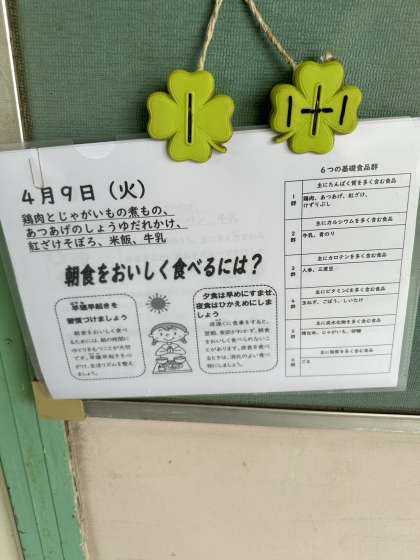 4月9日（火）
鶏肉とじゃがいもの煮もの、
あつあげのしょうゆだれかけ、
紅ざけそぼろ、米飯、牛乳
朝食をおいしく食べるには？
早寝早起きを
習慣づけましょう
朝食をおいしく食べ
るためには、朝の時間に
ゆとりをもつことが大切
です。早寝早起きを心
がけ、生活リズムを整え
ましょう。
夕食は早めにすませ、
夜食はひかえめにしま
しょう
6つの基礎食品群
1群
主にたんぱく質を多く含む食品
鶏肉、あつあげ、紅ざけ、
けずりぶし
2群
主にカルシウムを多く含む食品
牛乳、青のり
3群
主にカロテンを多く含む食品
人参、三度豆
4群
主にビタミンCを多く含む食品
玉ねぎ、ごぼう、しいたけ
5群
主に炭水化物を多く含む食品
精白米、じゃがいも、砂糖
6群
主に脂質を多く含む食品
ごま